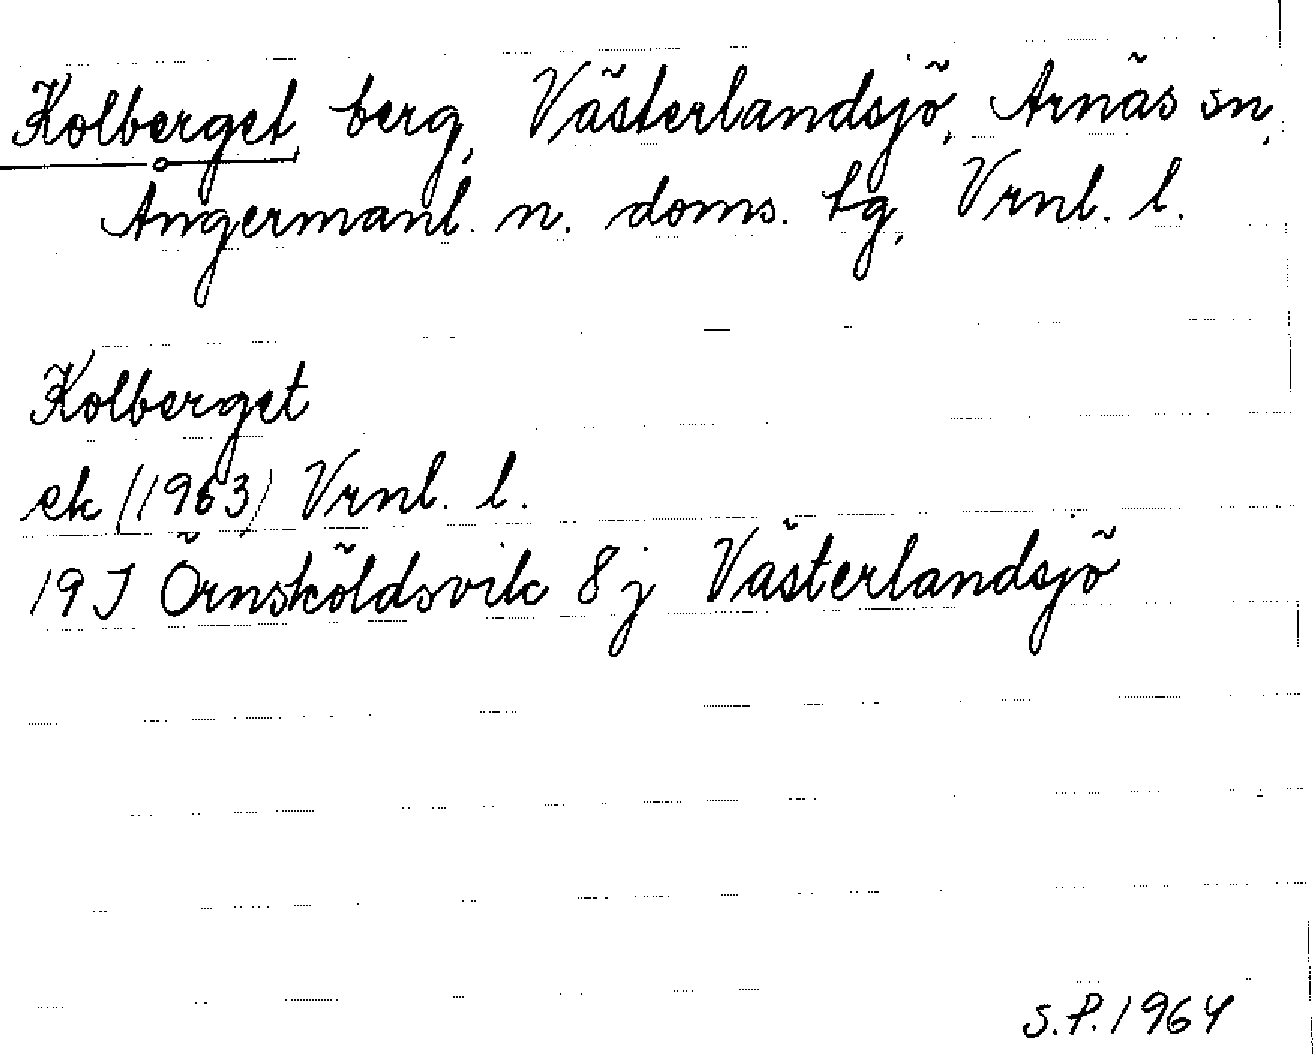 Kolberget, berg, Västerlandsjö, Arnäs sn,
Ångermanl. n. doms. tg, Vrnl. l.
Kolberget
ek (1963) Vrnl. l.
19 J Örnsköldsvik 8 j Västerlandsjö
S.P. 1964